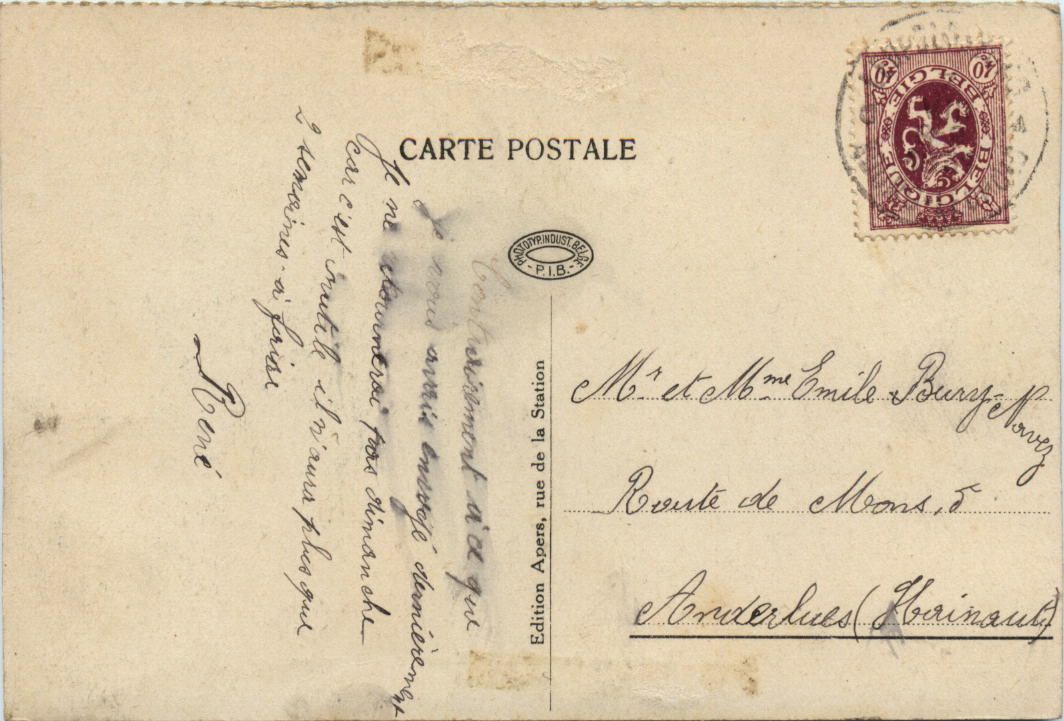 CARTE POSTALE
PHOTOTYP. INDUST. BELGE
- P.I.B. -
Edition Apers, rue de la Station
40 40
BELGIE BELGIQUE
Contrairement à ce que
je vous avais envoyé dernièrement
Je ne retournerai pas dimanche
car c'est inutile il n'aura plus que
2 semaines à faire
René
Mr et Mme Emile Burry-Navez
Route de Mons, 5
Anderlues (Hainaut)